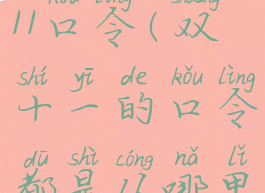 kǒu lìng shuāng
11口令(双
shí yī de kǒu lìng
十一的口令
dū shì cóng nǎ lǐ
都是从哪里